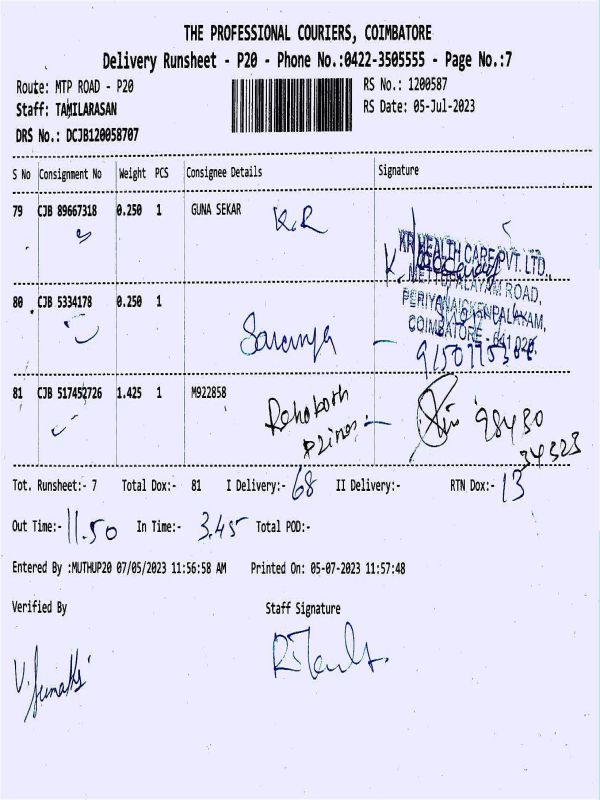 THE PROFESSIONAL COURIERS, COIMBATORE
Delivery Runsheet - P20 - Phone No.:0422-3505555 - Page No.:7
Route: MTP ROAD - P20 RS No.: 1200587
Staff: TAMILARASAN RS Date: 05-Jul-2023
DRS No.: DCJB120058707
S No Consignment No Weight PCS Consignee Details Signature
79 CJB 89667318 0.250 1 GUNA SEKAR K.R
KR HEALTH CARE PVT. LTD.,
METTUPALAYAM ROAD,
PERIYANAICKENPALAYAM,
COIMBATORE - 641 020.
80 CJB 5334178 0.250 1
Saranya -
81 CJB 517452726 1.425 1 M922858
98430
34323
Tot. Runsheet:- 7 Total Dox:- 81 I Delivery:- 68 II Delivery:- RTN Dox:- 13
Out Time:- 11.50 In Time:- 3.45 Total POD:-
Entered By :MUTHUP20 07/05/2023 11:56:58 AM Printed On: 05-07-2023 11:57:48
Verified By Staff Signature